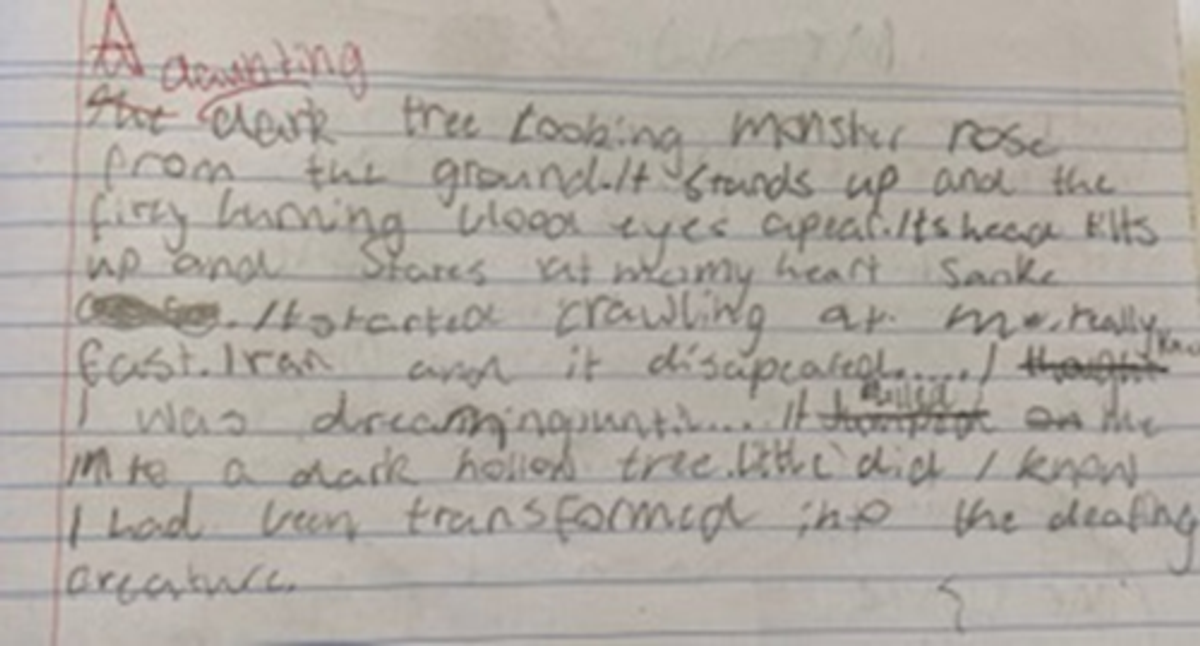 A daunting
the dark tree Looking monster rose
from the ground. It stands up and the
firey burning blood eyes apear. Its head tilts
up and stares at my heart sanke
. It started crawling at me. really
fast. I ran and it disapeared...... I thought
I was dreaming until.... It pulled on me
into a dark hollow tree. Little did I know
I had been transformed into the deafing
creature.